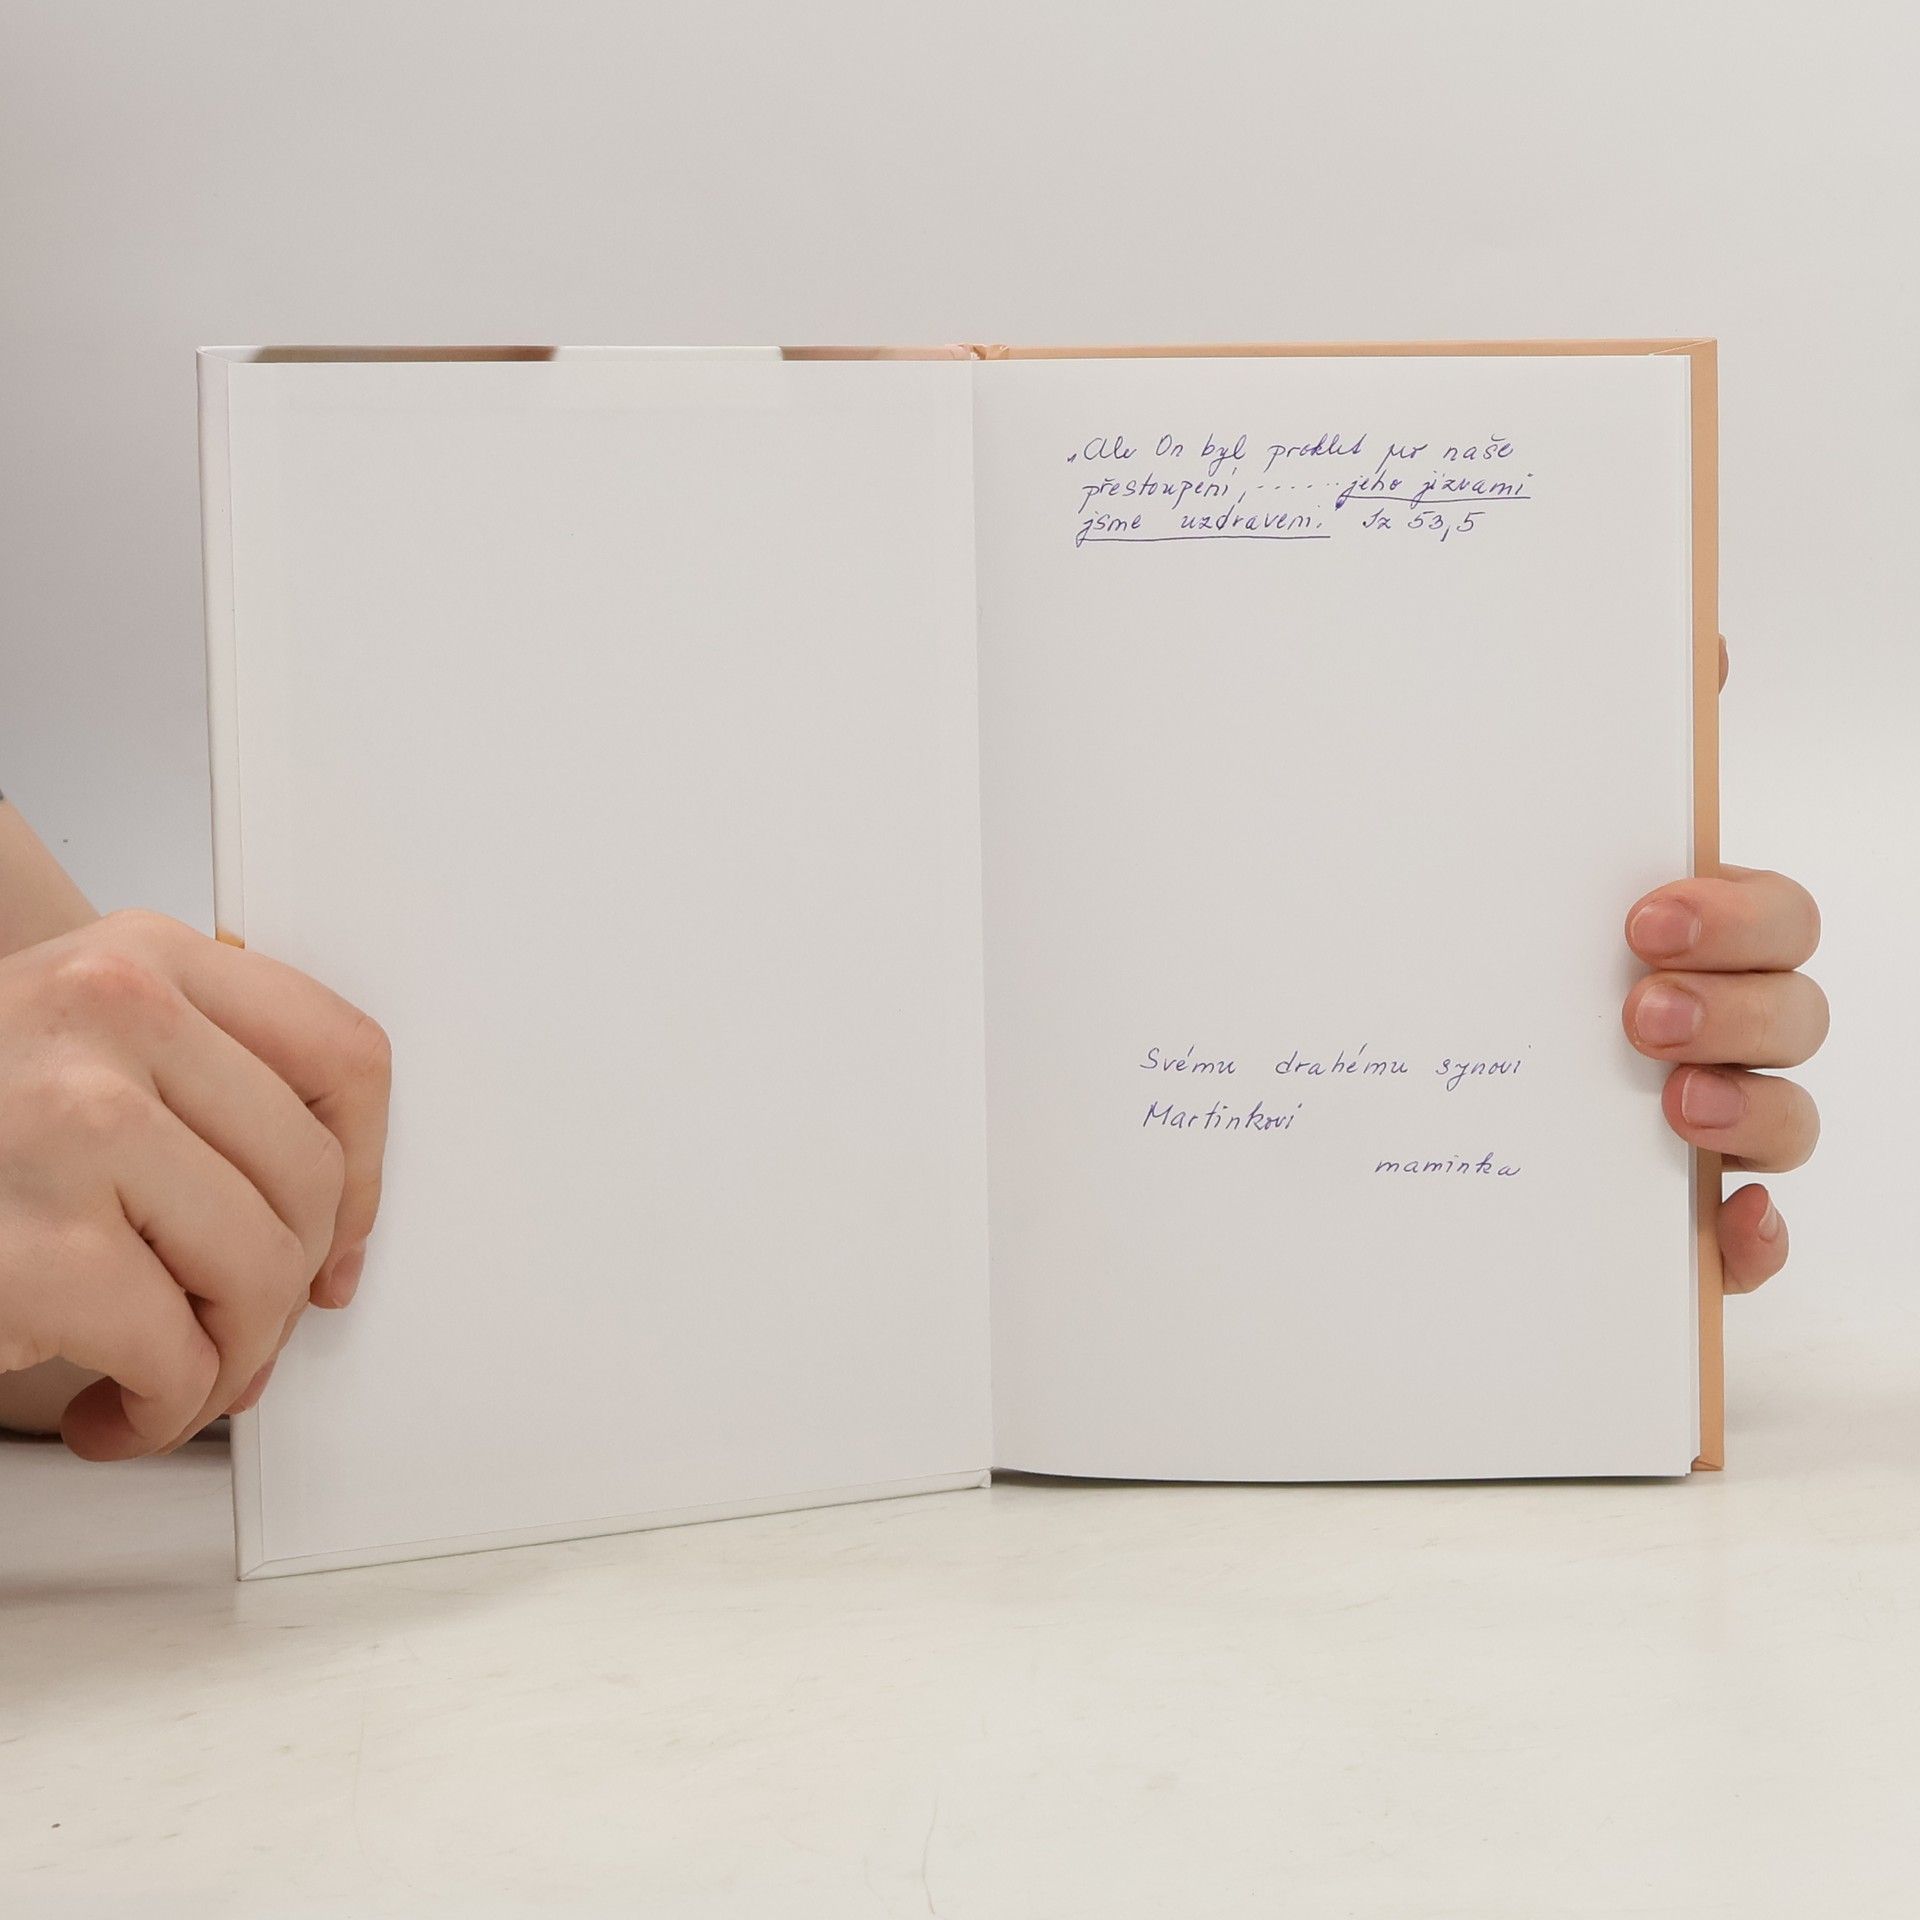 „Ale On byl proklet pro naše
přestoupení, ...... jeho jizvami
jsme uzdraveni.“ Iz 53,5
Svému drahému synovi
Martinkovi
maminka